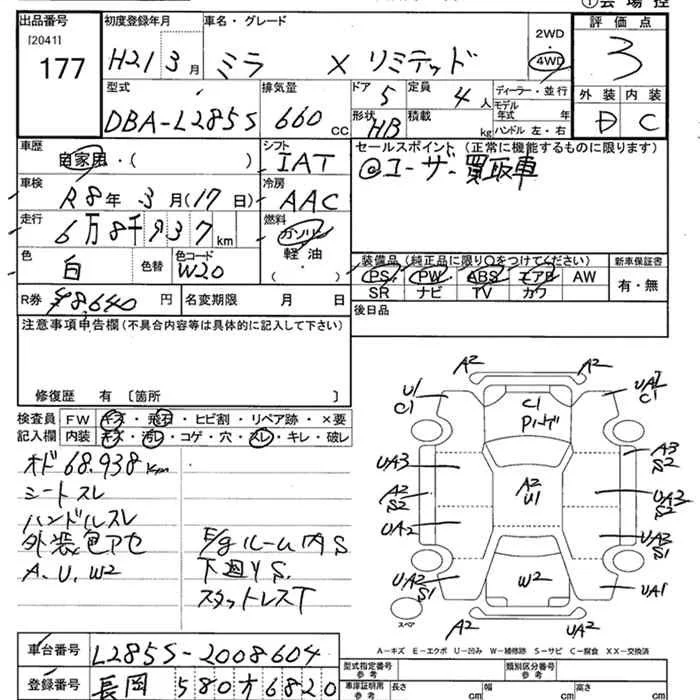 ①会場控
出品番号
[2041]
177
初度登録年月
H21 3月
車名・グレード
ミラ X リミテッド
2WD
・
4WD
評価点
3
型式
DBA-L285S
排気量
660 cc
ドア 5
定員 4人
形状 HB
積載 kg
ディーラー・並行
モデル年式 年
ハンドル 左・右
外装 内装
D C
車歴
自家用・( )
シフト
IAT
セールスポイント (正常に機能するものに限ります)
◎ユーザー買取車
車検
R8年 3月(17日)
冷房
AAC
走行
6万8千937km
燃料
ガソリン
軽油
・
( )
色
白
色替
色コード
W20
装備品 (純正品に限り○をつけてください)
PS PW ABS エアB AW
SR ナビ TV カワ
新車保証書
有・無
R券 ¥8,640円
名変期限 月 日
後日品
注意事項申告欄(不具合内容等は具体的に記入して下さい)
修復歴 有 〔箇所 〕
検査員 FW キズ・飛石・ヒビ割・リペア跡・×要
記入欄 内装 キズ・汚レ・コゲ・穴・スレ・キレ・破レ
オド68.938Km
シートスレ
ハンドルスレ
外装色アセ
A.U.W2
E/gルーム内S
下廻りS.
スタットレスT
A2 A2
U1
C1
UA2
C1
C1
P ハゲ
UA3
A3
S2
A2
S2
A2
U1
UA3
S2
UA2
UA3
S1
UA2
S1
W2
UA1
スペア
A2
UA2
A-キズ E-エクボ U-凹み W-補修跡 S-サビ C-腐食 XX-交換済
車台番号 L285S-2008604
登録番号 長岡 580 オ6820
型式指定番号
参考
類別区分番号
参考
車庫証明用
参考
長さ cm
幅 cm
高さ cm